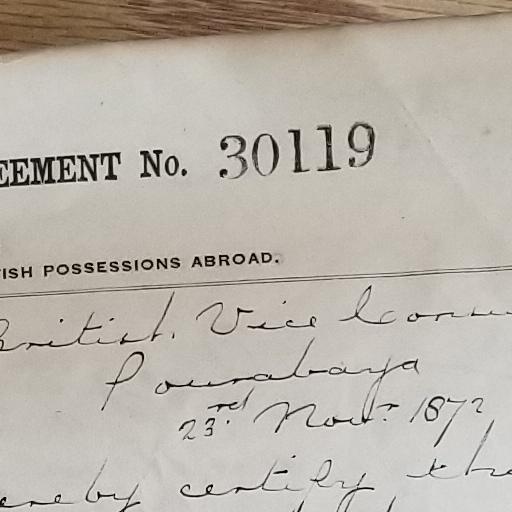 EEMENT No. 30119
ISH POSSESSIONS ABROAD.
British Vice Consu
Sourabaya
23rd. Novr. 1872
ereby certify tha